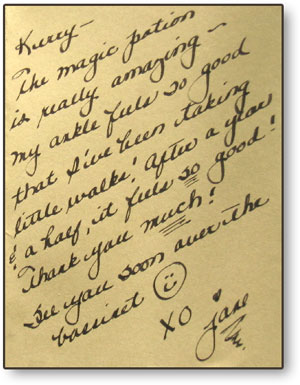 Kerry—
The magic potion
is really amazing—
my ankle feels so good
that I've been taking
little walks! After a year
& a half, it feels so good!
Thank you much!
See you soon over the
bassiset ☺
XO Jane